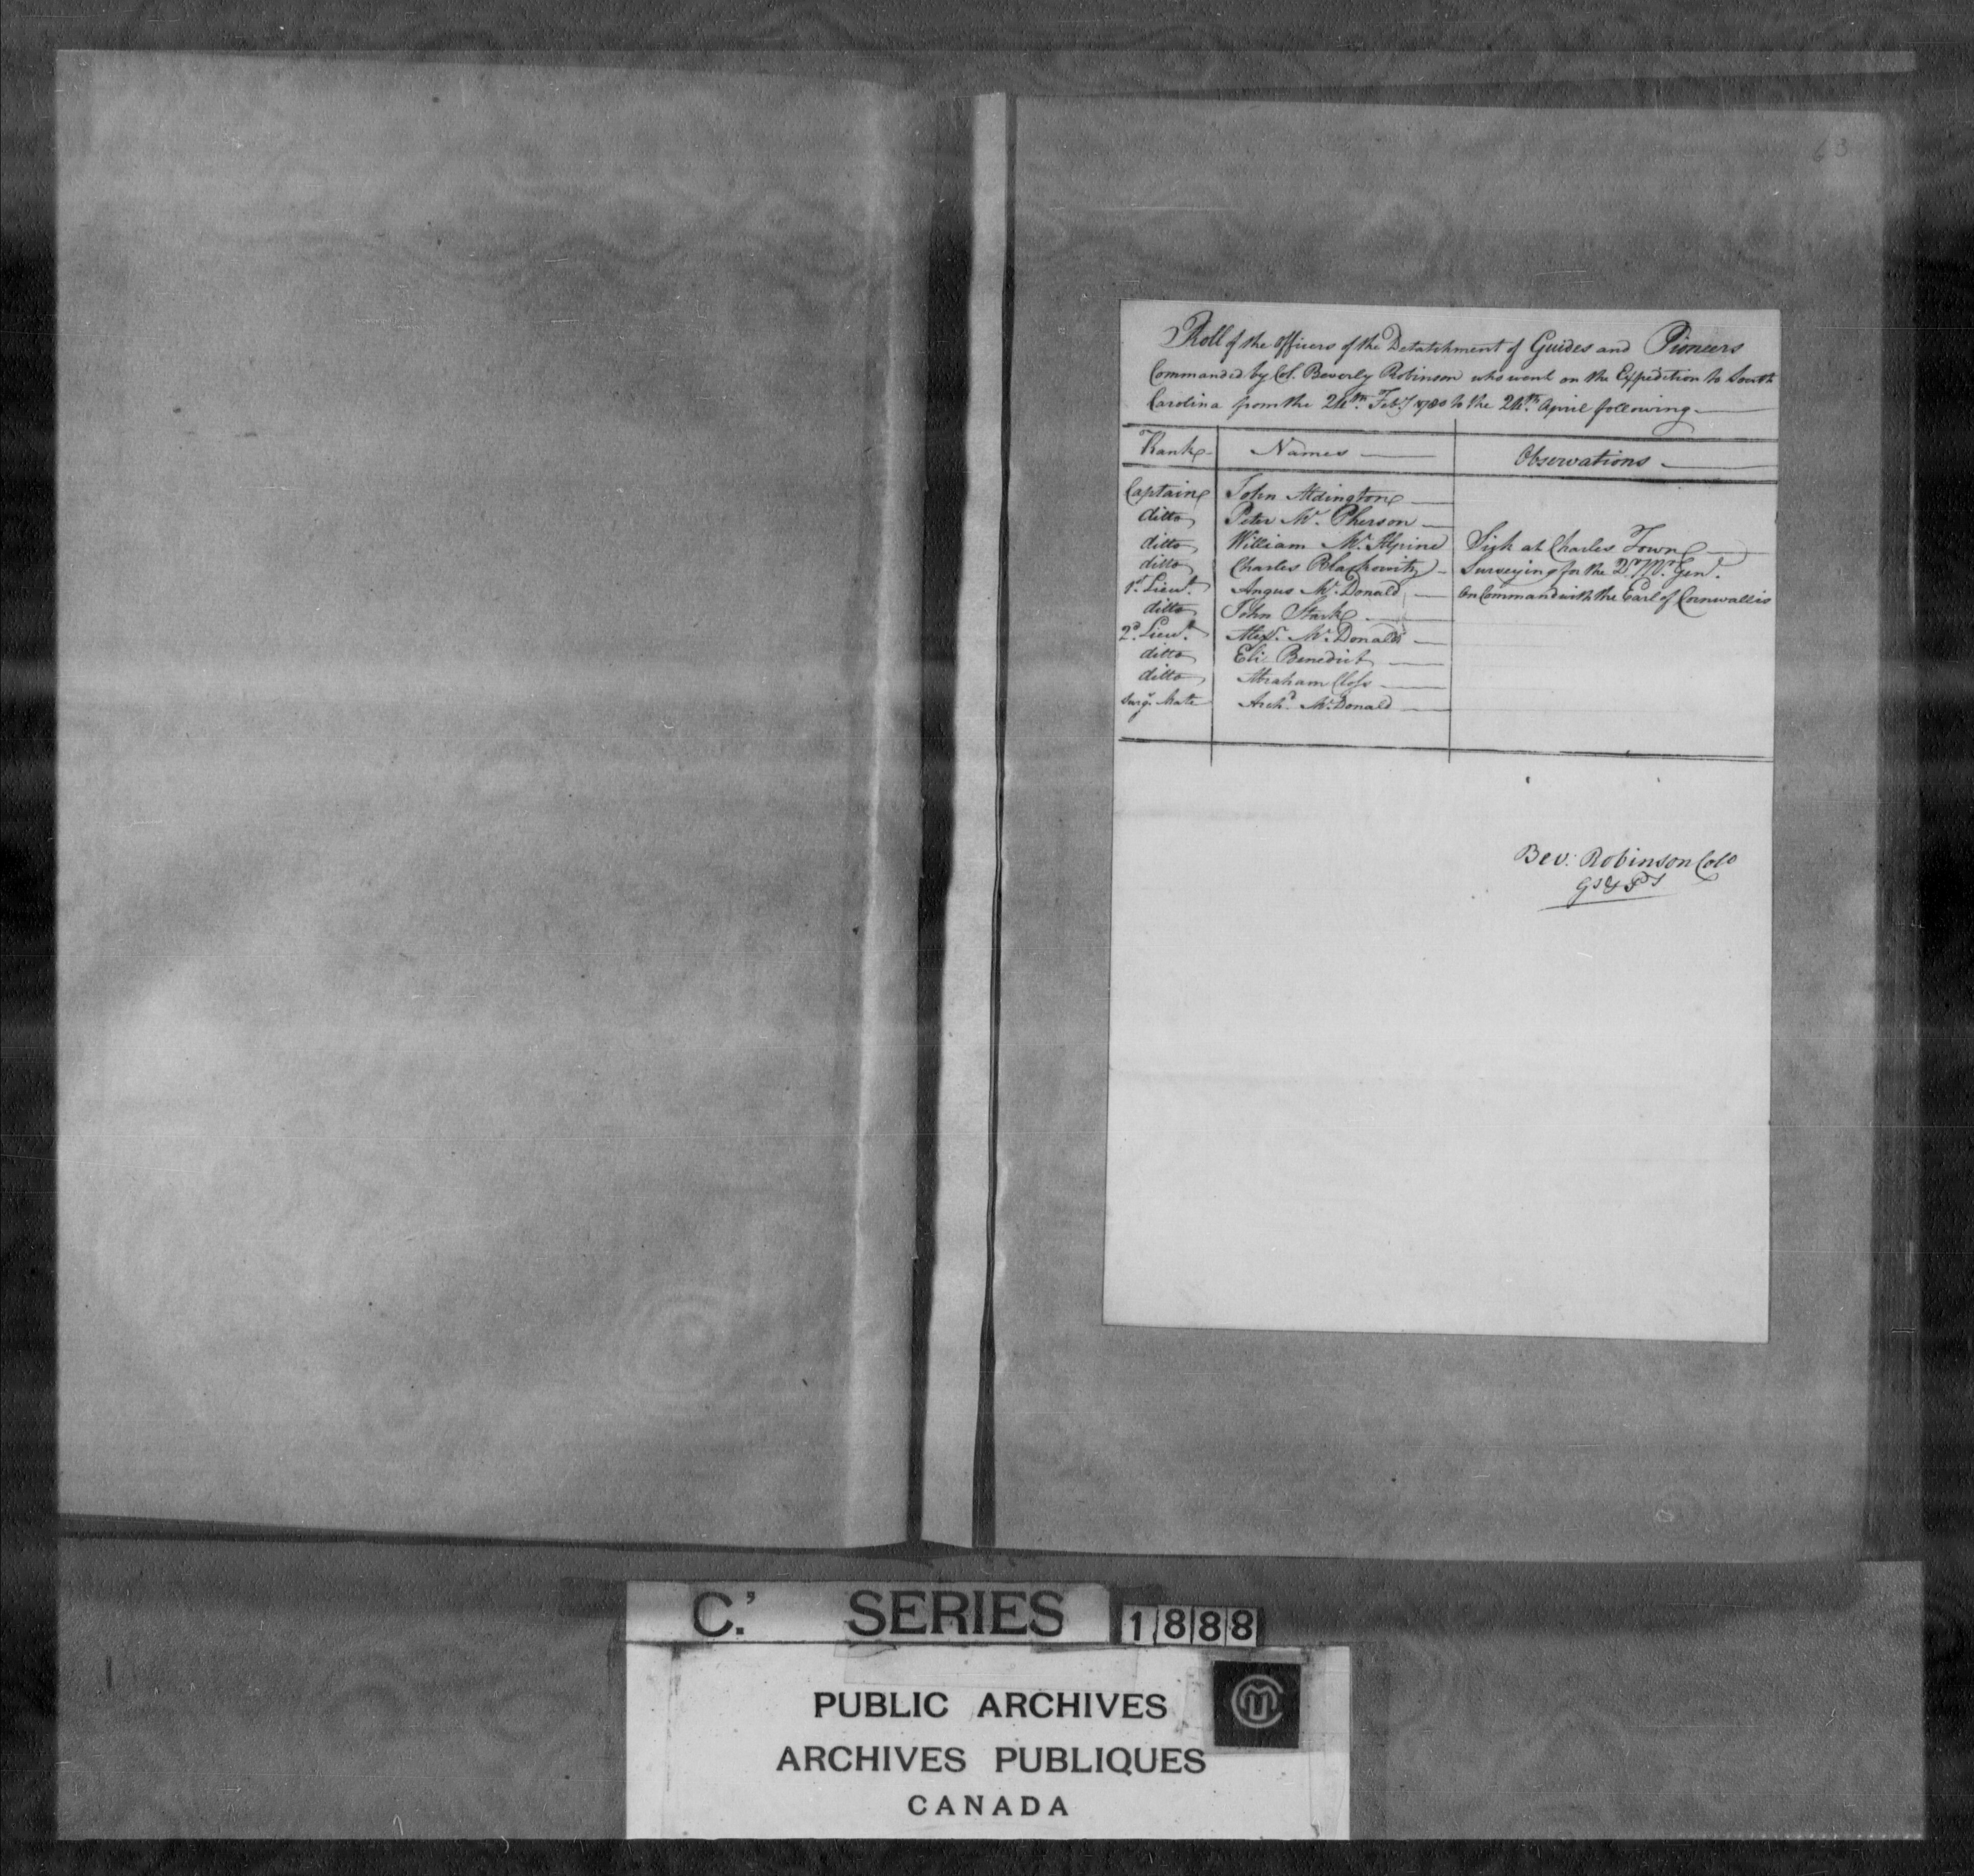 63
Roll of the Officers of the Detatchment of Guides and Pioneers
Commanded by Col. Beverly Robinson who went on the Expedition to South
Carolina from the 24th. Feby 1780 to the 24th. April following
Rank Names Observations
Captain John Aldington
ditto Peter Mc. Pherson
ditto William Mc. Alpine Sick at Charles Town
ditto Charles Blaskowitz Surveying for the Gen.l
1st. Lieut. Angus Mc. Donald On Command with the Earl of Cornwallis
ditto John Stark
2d. Lieut. Alexr. Mc. Donald
ditto Eli Benedict
ditto Abraham Closs
Surgn. Mate Archd. Mc.Donald
Bev: Robinson Colo
Gs & Ps
C.' SERIES 1888
PUBLIC ARCHIVES
ARCHIVES PUBLIQUES
CANADA